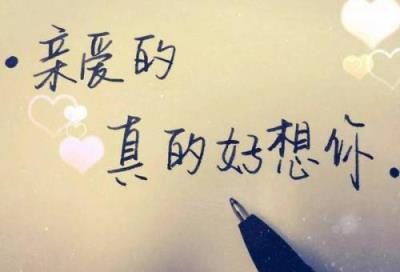 亲爱的
真的好想你.